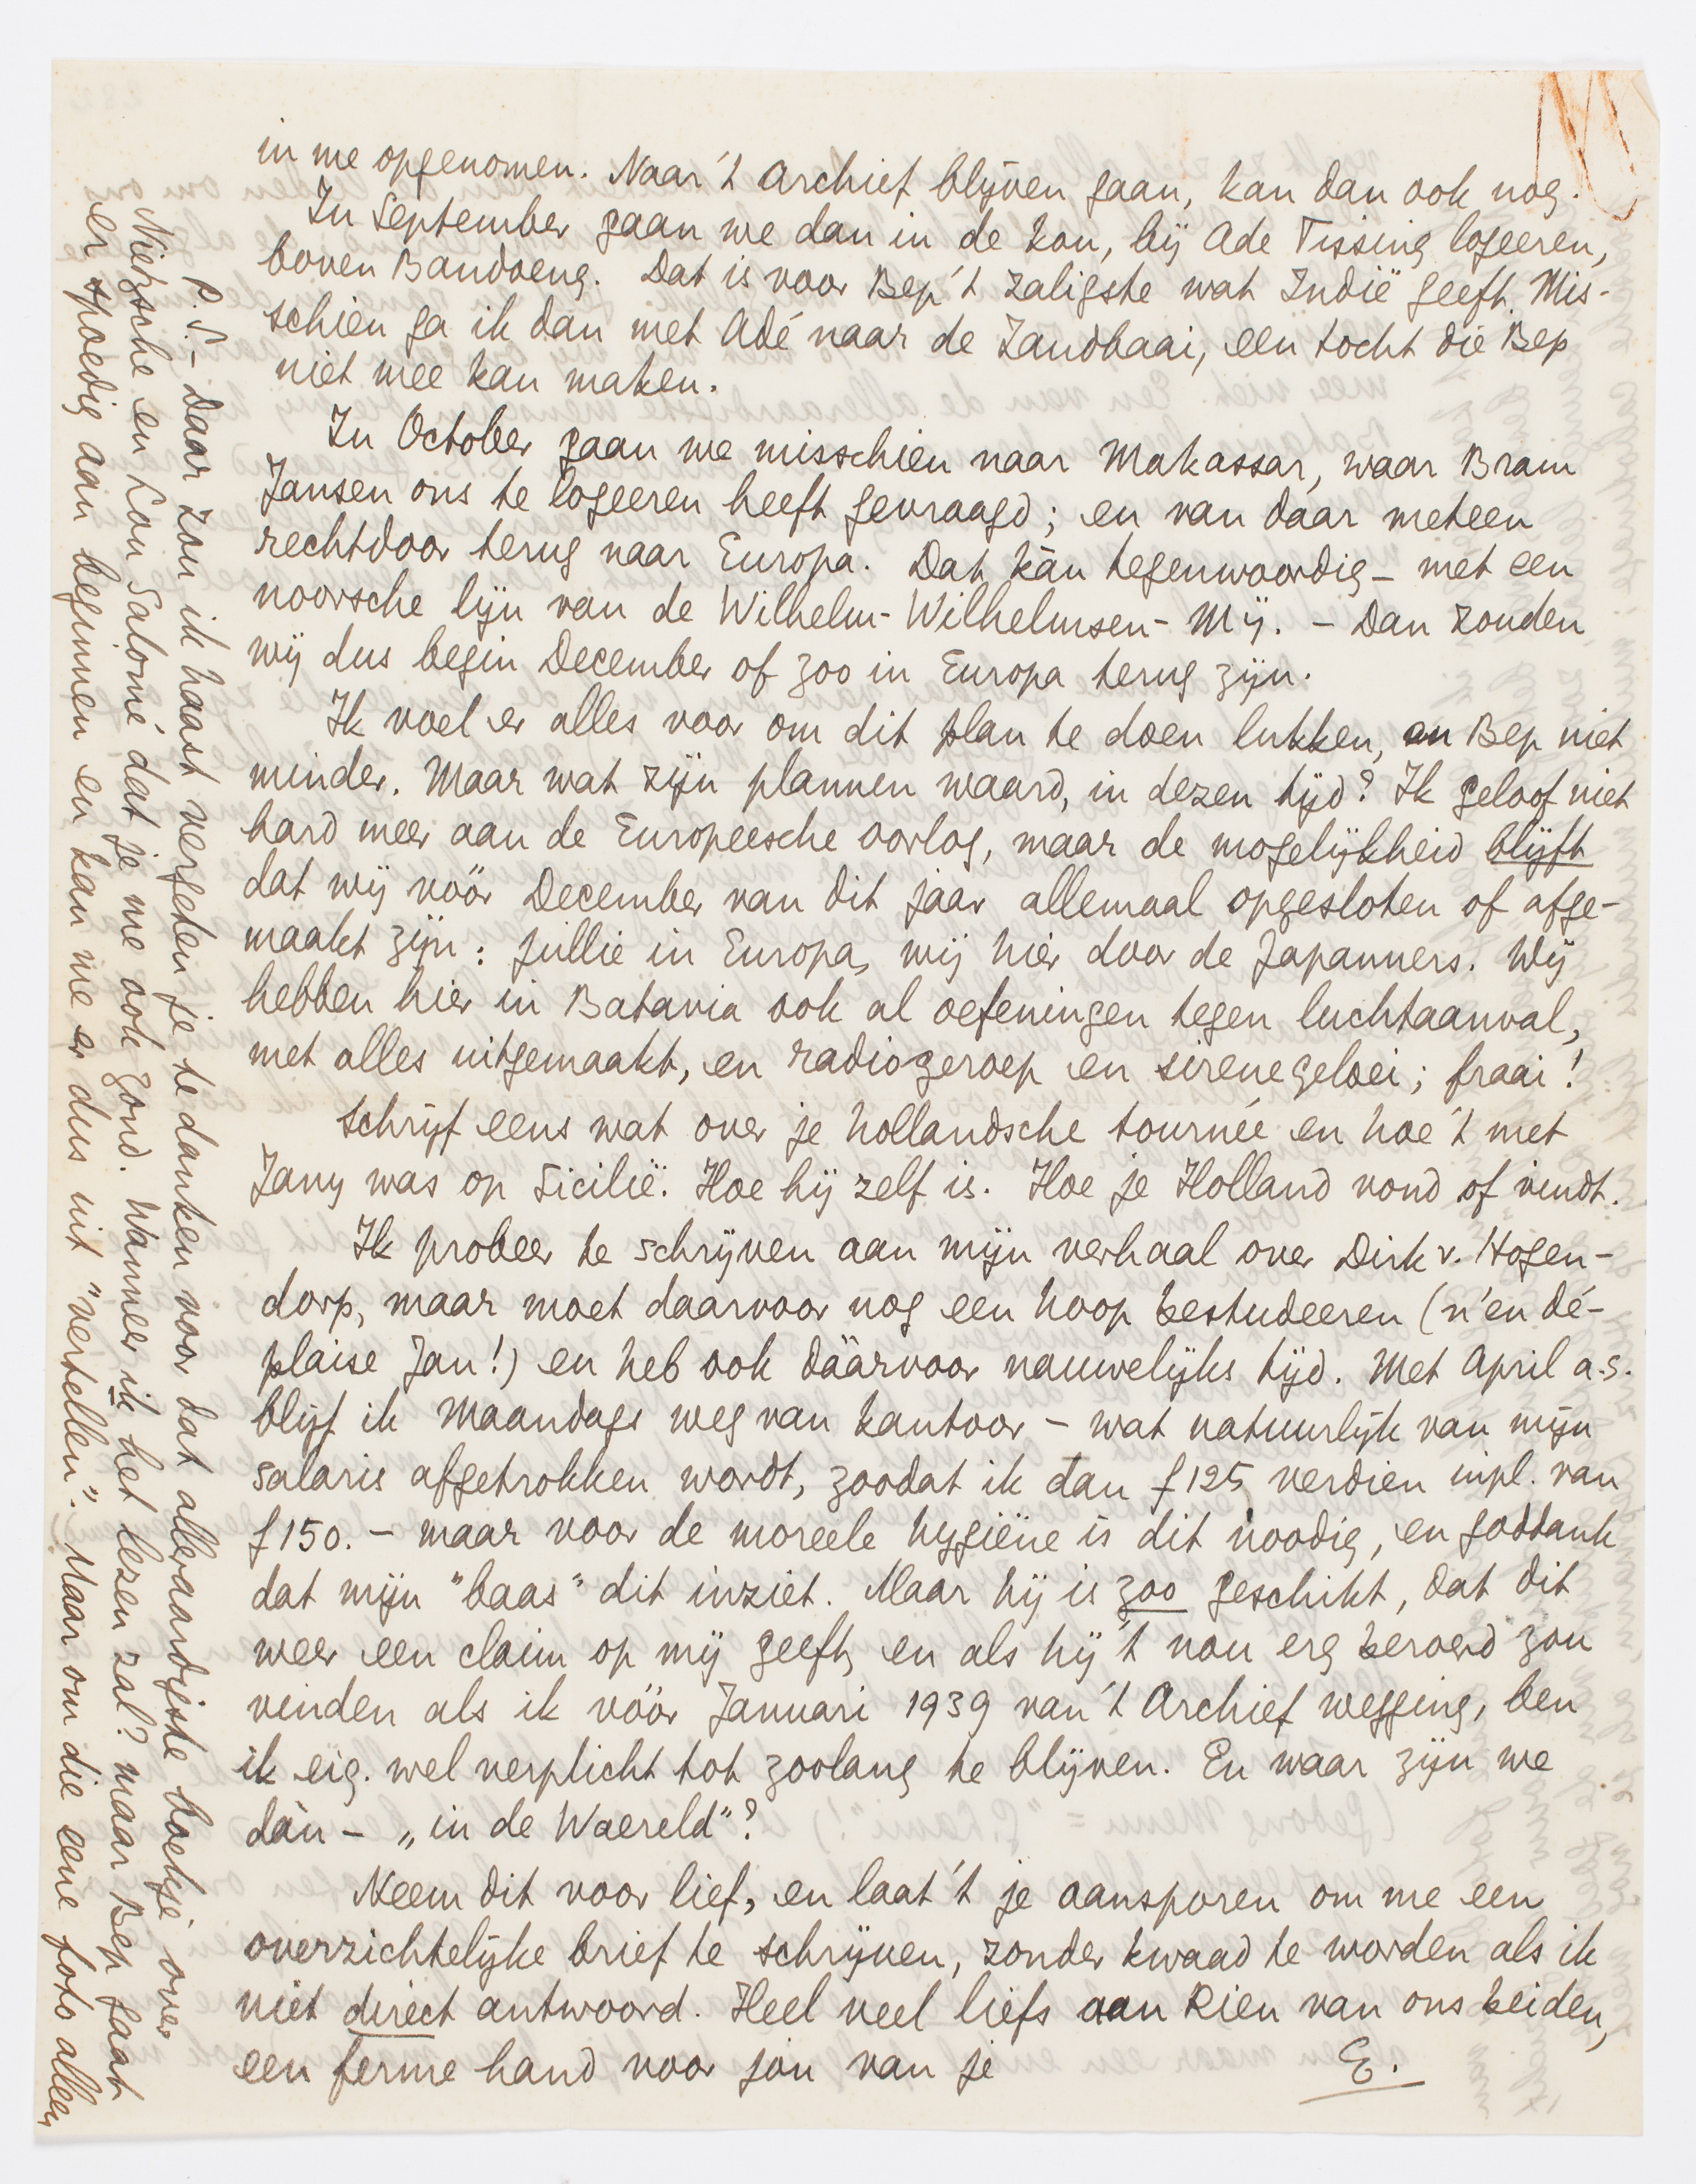 in me opgenomen. Naar 't Archief blijven gaan, kan dan ook nog.
In September gaan we dan in de kou, bij Ade Tissing logeeren,
boven Bandoeng. Dat is voor Bep 't zaligste wat Indië geeft. Mis-
schien ga ik dan met Adé naar de Zandbaai, een tocht die Bep
niet mee kan maken.
In October gaan we misschien naar Makassar, waar Bram
Jansen ons te logeeren heeft gevraagd; en van daar meteen
rechtdoor terug naar Europa. Dat kàn tegenwoordig – met een
noorsche lijn van de Wilhelm-Wilhelmsen-Mij. – Dan zouden
wij dus begin December of zoo in Europa terug zijn.
Ik voel er alles voor om dit plan te doen lukken, en Bep niet
minder. Maar wat zijn plannen waard, in dezen tijd? Ik geloof niet
hard meer aan de Europeesche oorlog, maar de mogelijkheid blijft
dat wij vóór December van dit jaar allemaal opgesloten of afge-
maakt zijn: jullie in Europa, wij hier door de Japanners. Wij
hebben hier in Batavia ook al oefeningen tegen luchtaanval,
met alles uitgemaakt, en radiogeroep en sirenegeloei; fraai!
Schrijf eens wat over je hollandsche tournée en hoe 't met
Jany was op Sicilië. Hoe hij zelf is. Hoe je Holland vond of vindt.
Ik probeer te schrijven aan mijn verhaal over Dirk v. Hogen-
dorp, maar moet daarvoor nog een hoop bestudeeren (n'en dé-
plaise Jan!) en heb ook dáárvoor nauwelijks tijd. Met April a.s.
blijf ik Maandags weg van kantoor – wat natuurlijk van mijn
salaris afgetrokken wordt, zoodat ik dan f 125 verdien inpl. van
f 150. – maar voor de moreele hygiëne is dit noodig, en goddank
dat mijn "baas" dit inziet. Maar hij is zoo geschikt, dat dit
weer een claim op mij geeft, en als hij 't nou erg beroerd zou
vinden als ik vóór Januari 1939 van 't Archief wegging, ben
ik eig. wel verplicht tot zoolang te blijven. En waar zijn we
dán – „in de Waereld"?
Neem dit voor lief, en laat 't je aansporen om me een
overzichtelijke brief te schrijven, zonder kwaad te worden als ik
niet direct antwoord. Heel veel liefs aan Rien van ons beiden,
een ferme hand voor jou van je
E.
P.S. – Daar zou ik haast vergeten je te danken voor dat alleraardigste boekje over
Nietzsche en Lou Salomé dat je me ook zond. Wanneer ik het lezen zal? maar Bep gaat
er spoedig aan beginnen en kan me er dus uit "vertellen". Maar om die eene foto alleen